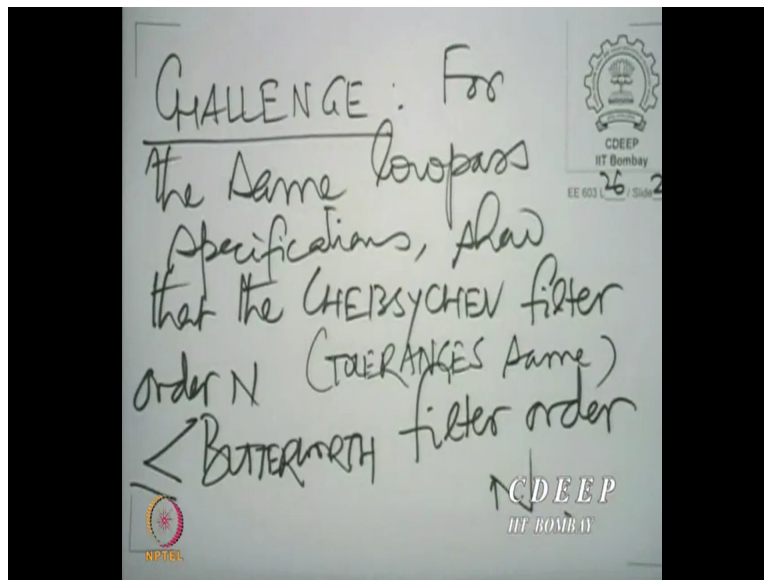 CHALLENGE: For
the same lowpass
specifications, show
that the CHEBSYCHEV filter
order N (TOLERANCES same)
≤ BUTTERWORTH filter order
CDEEP
IIT Bombay
EE 603 L 26 / Slide 2
CDEEP
IIT BOMBAY
NPTEL